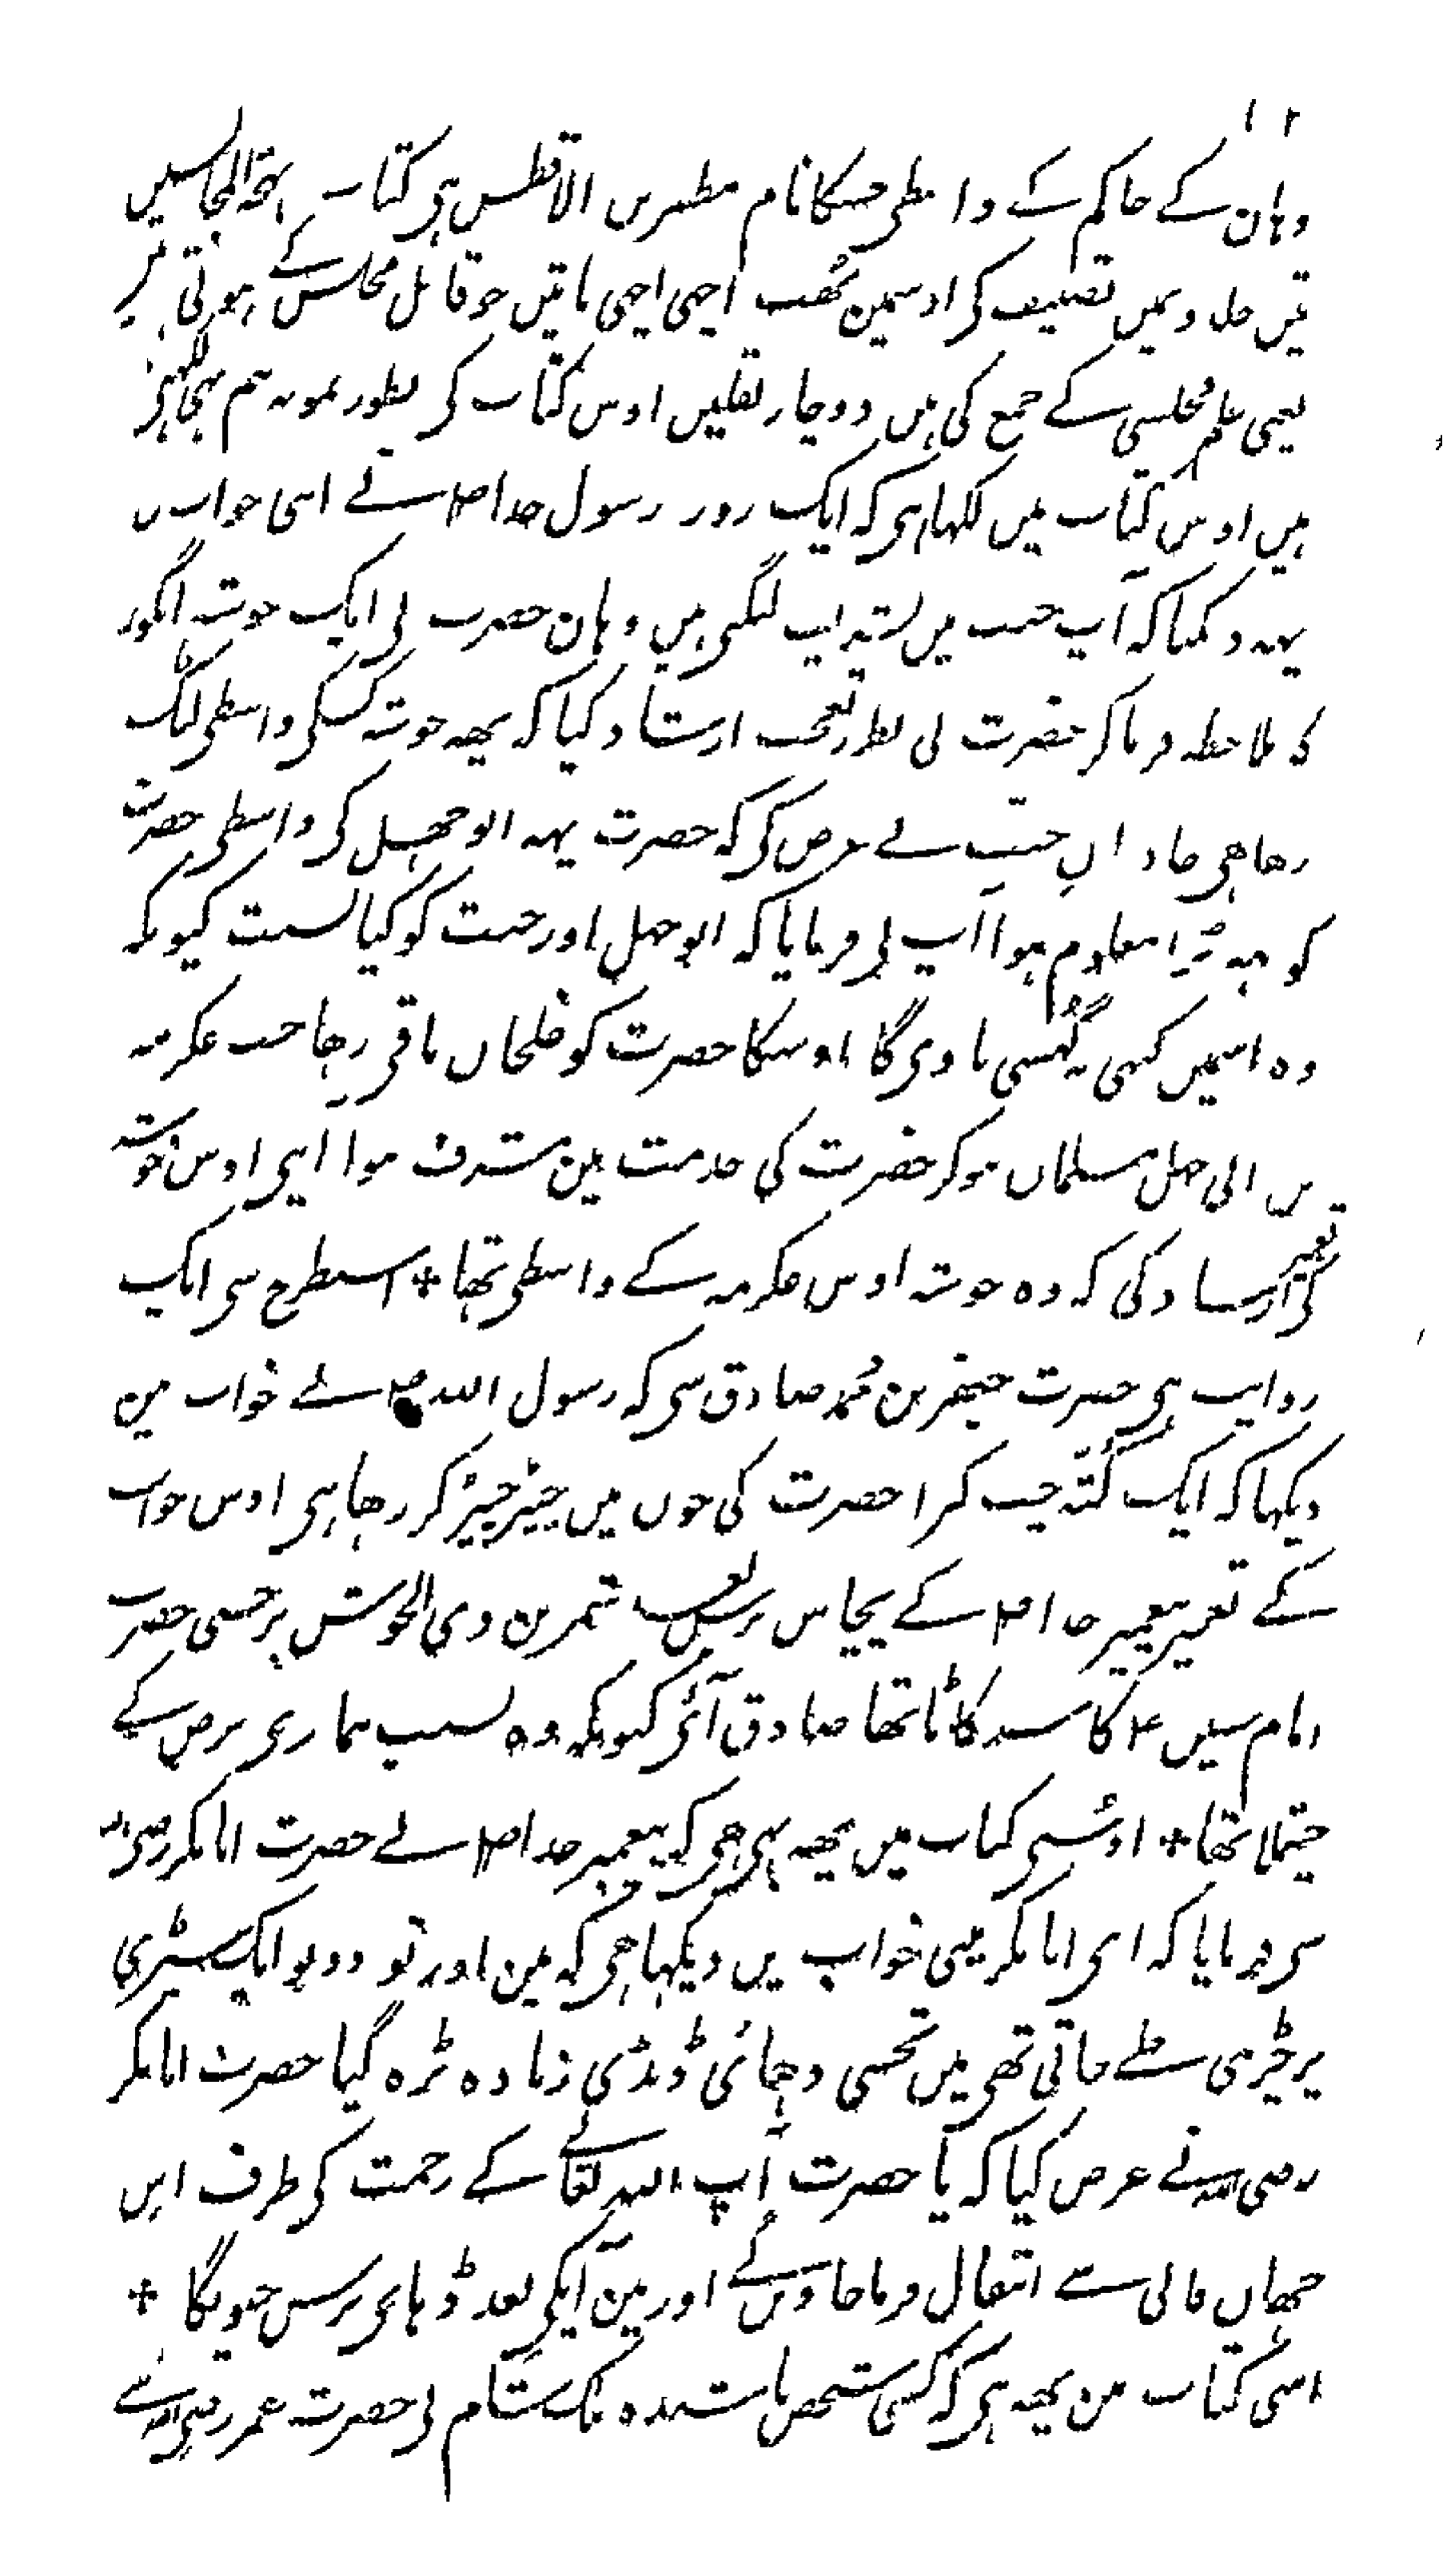 ۱۲
وہان کے حاکم کے واسطی جسکا نام مظہربن الافطس ہی کتاب بہجۃ المجالسین
تین جلدو میں تصنیف کر اوسمین بُھب اچہی اچہی باتین جو قابل مجلس کے ہوتی ہیں
یعنی علم مجلسی کے جمع کی ہیں دو چار نقلین اوس کتاب کی بطور نمونہ ہم یہان لکہتی
ہیں اوس کتاب میں لکہا ہی کہ ایک روز رسول خدا صلعم نے اپنی خواب میں
یہہ دیکہا کہ آپ جنت میں تشریف لیگئی ہیں وہان حضرت نی ایک خوشہ انگور
کا ملاحظہ فرما کر حضرت نی بطور تعجب ارشاد کیا کہ یہہ خوشہ کسکی واسطی لٹک
رہا ہی خادمان جنت نے عرض کی کہ حضرت یہہ ابو جہل کی واسطی حضرت
کو یہہ بُرا معلوم ہوا آپ نی فرمایا کہ ابو جہل اور جنت کو کیا نسبت کیونکہ
وہ اسمین کبہی نہ گُہسنی پاویگا اوسکا حضرت کو خلجان باقی رہا جب عکرمہ
بن ابی جہل مسلمان ہو کر حضرت کی خدمت مین مشرف ہوا آپنی اوس خوشہ
کی تعبیر ارشاد کی کہ وہ خوشہ اوس عکرمہ کے واسطی تھا + اسیطرح سی ایک
روایت ہی حضرت جعفر بن محمد صادق سی کہ رسول اللہ صلعم نے خواب مین
دیکہا کہ ایک کُتّہ چت کبرا حضرت کی خون میں چبڑ چبڑ کر رہا ہی اوس خواب
کے تعبیر پیغمبر خدا صلعم کے پچاس برس بعد شمر بن ذی الجوشن پر جسنی حضرت
امام حسین ع کا سر کاٹا تھا صادق آئی کیونکہ وہ بسبب بیماری برص کے
چتلا تھا + اوسُی کتاب میں یہہ بہی ہی کہ پیغمبر خدا صلعم نے حضرت ابابکر رضی اللہ
سی فرمایا کہ ای ابابکر مینی خواب میں دیکہا ہی کہ مین اور تو دونو ایک سیڑہی
پر چڑہی چلے جاتی تھی میں تجھسی دہائی ڈنڈی زیادہ بڑہ گیا حضرت ابابکر
رضی اللہ نے عرض کیا کہ یا حضرت آپ اللہ تعالے کے رحمت کی طرف اس
جہان فانی سے انتقال فرما جاوینگے اور مین آپکی بعد ڈہائی برس جیونگا +
اسی کتاب مین یہہ ہی کہ کسی شخص باشندہ ملک شام نی حضرت عمر رضی اللہ سے